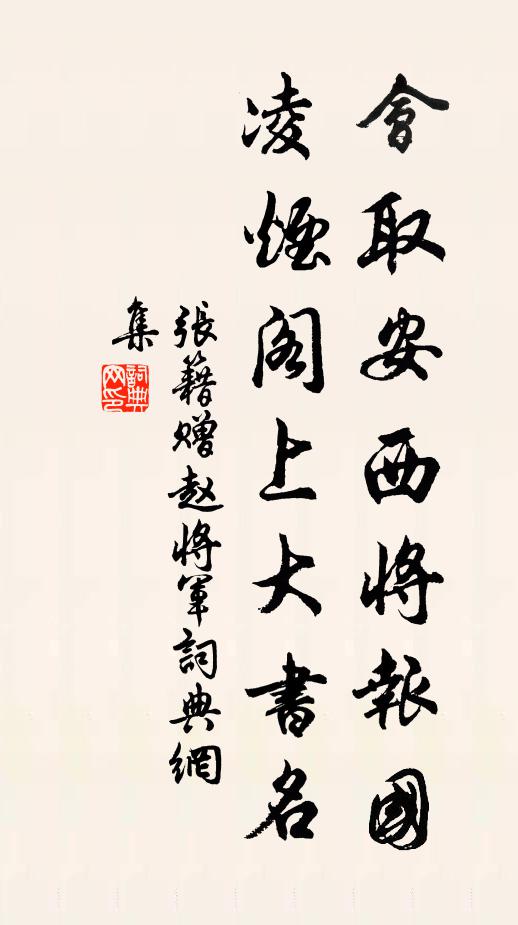 會取安西將報國
凌煙閣上大書名
張籍贈赵將軍詞典網
集
詞典
网印